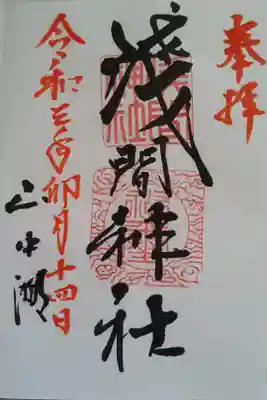 奉拝
浅間神社
令和三年卯月十四日
山中湖